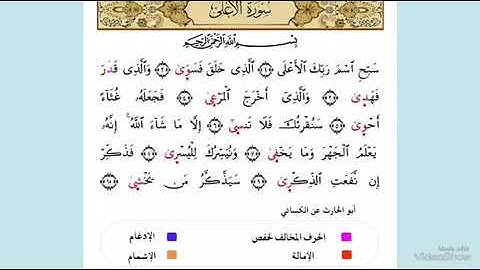 سُورَةُ الأَعْلَى
بِسْمِ اللَّهِ الرَّحْمَٰنِ الرَّحِيمِ
سَبِّحِ اسْمَ رَبِّكَ الْأَعْلَى ۝١ الَّذِي خَلَقَ فَسَوَّىٰ ۝٢ وَالَّذِي قَدَرَ
فَهَدَىٰ ۝٣ وَالَّذِي أَخْرَجَ الْمَرْعَىٰ ۝٤ فَجَعَلَهُ غُثَاءً
أَحْوَىٰ ۝٥ سَنُقْرِئُكَ فَلَا تَنسَىٰ ۝٦ إِلَّا مَا شَاءَ اللَّهُ ۚ إِنَّهُ
يَعْلَمُ الْجَهْرَ وَمَا يَخْفَىٰ ۝٧ وَنُيَسِّرُكَ لِلْيُسْرَىٰ ۝٨ فَذَكِّرْ
إِن نَّفَعَتِ الذِّكْرَىٰ ۝٩ سَيَذَّكَّرُ مَن يَخْشَىٰ ۝١٠
أبو الحارث عن الكسائي
الحرف المخالف لحفص الإدغام
الإمالة الإشمام
Made with
VideoShow